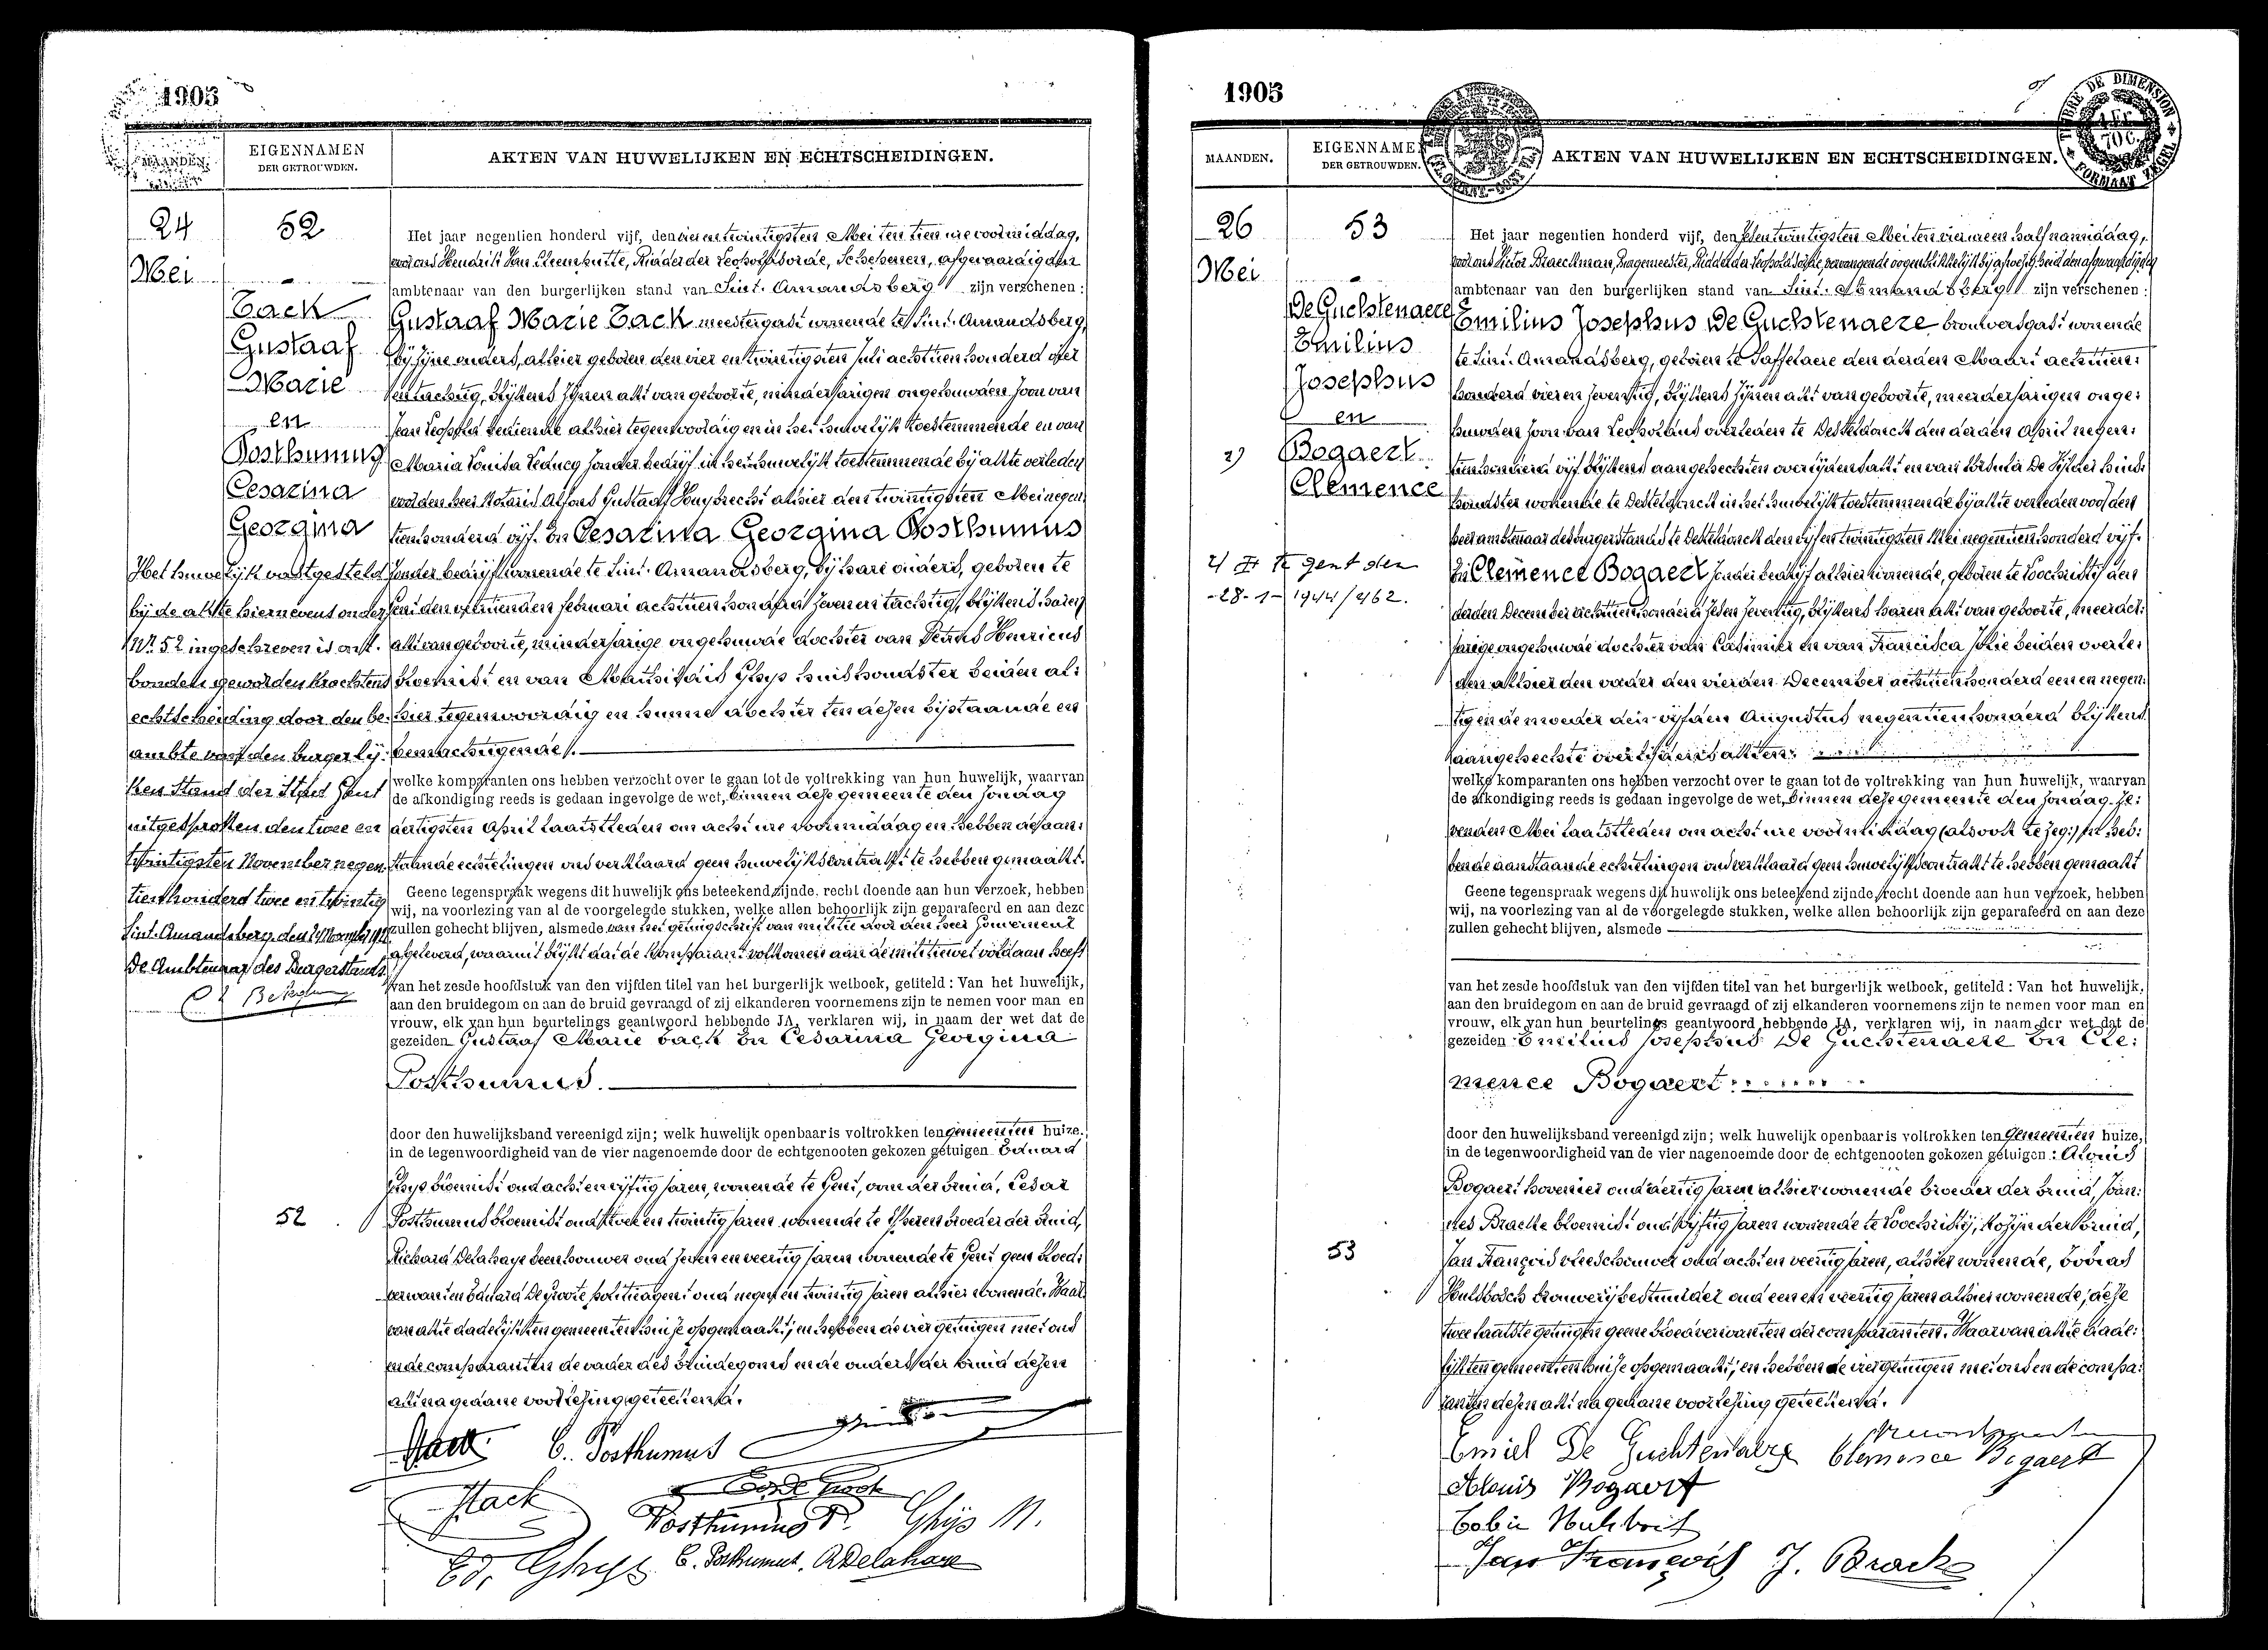 1905
MAANDEN.
EIGENNAMEN
DER GETROUWDEN.
AKTEN VAN HUWELIJKEN EN ECHTSCHEIDINGEN.
24
Mei
52
Tack
Gustaaf
Marie
en
Posthumus
Cesarina
Georgina
Het huwelijk vastgesteld
bij de akte hiernevens onder
Nr 52 ingeschreven is ont-
bonden geworden krachtens
echtscheiding door den be-
ambte van den burgerlij-
ken Stand der Stad Gent
uitgesproken den twee en
twintigsten November negen-
tienhonderd twee en twintig
Sint-Amandsberg, den
De Ambtenaar des Burgerstands
52
Het jaar negentien honderd vijf, den vier en twintigsten Mei ten tien ure voormiddag,
voor ons Hendrik Van Cleemputte, Ridder der Leopoldsorde, Schepenen, afgevaardigden
ambtenaar van den burgerlijken stand van Sint-Amandsberg zijn verschenen:
Gustaaf Marie Tack meestergast wonende te Sint-Amandsberg,
bij zijne ouders, alhier geboren den vier en twintigsten Juli achttien honderd vier
en tachtig, blijkens zijnen akt van geboorte, minderjarigen ongehuwden zoon van
Jean Leopold bediende alhier tegenwoordig en in het huwelijk toestemmende en van
Maria Louisa Leducq zonder bedrijf in het huwelijk toestemmende bij akte verleden
voor den heer Notaris Alfons Gustaaf Huybrecht alhier den twintigsten Mei negen-
tienhonderd vijf. En Cesarina Georgina Posthumus
zonder bedrijf wonende te Sint-Amandsberg, bij hare ouders, geboren te
Gent den veertienden februari achttienhonderd zeven en tachtig, blijkens haren
akt van geboorte, minderjarige ongehuwde dochter van Petrus Henricus
bloemist en van Mathildis Ghys huishoudster beiden al-
hier tegenwoordig en hunne dochter ten dezen bijstaande en
bemachtigende.
welke komparanten ons hebben verzocht over te gaan tot de voltrekking van hun huwelijk, waarvan
de afkondiging reeds is gedaan ingevolge de wet, binnen deze gemeente den Zondag
dertigsten April laatstleden om acht ure voormiddag en hebben de aan-
staande echtelingen ons verklaard geen huwelijkscontrakt te hebben gemaakt.
Geene tegenspraak wegens dit huwelijk ons beteekend zijnde, recht doende aan hun verzoek, hebben
wij, na voorlezing van al de voorgelegde stukken, welke allen behoorlijk zijn geparafeerd en aan deze
zullen gehecht blijven, alsmede van het getuigschrift van militie door den heer Gouverneur
afgeleverd, waaruit blijkt dat de komparant volkomen aan de militiewet voldaan heeft
van het zesde hoofdstuk van den vijfden titel van het burgerlijk wetboek, getiteld: Van het huwelijk,
aan den bruidegom en aan de bruid gevraagd of zij elkanderen voornemens zijn te nemen voor man en
vrouw, elk van hun beurtelings geantwoord hebbende JA, verklaren wij, in naam der wet dat de
gezeiden Gustaaf Marie Tack En Cesarina Georgina
Posthumus.
door den huwelijksband vereenigd zijn; welk huwelijk openbaar is voltrokken ten gemeenten huize,
in de tegenwoordigheid van de vier nagenoemde door de echtgenooten gekozen getuigen Eduard
Ghys bloemist oud acht en vijftig jaren, wonende te Gent, oom der bruid, Cesar
Posthumus bloemist oud twee en twintig jaren wonende te broeder der bruid,
Richard Delahaye beenhouwer oud zeven en veertig jaren wonende te Gent geen bloed-
verwant en Eduard De Groote politieagent oud negen en twintig jaren alhier wonende. Waar-
van akte dadelijk ten gemeentenhuize opgemaakt, en hebben de vier getuigen met ons
en de comparanten de vader des bruidegoms en de ouders der bruid dezen
akt na gedane voorlezing geteekend.
GTack C. Posthumus
Tack
Posthumus P. Ghijs M.
Ed. Ghys C. Posthumus. R Delahaye
1905
MAANDEN.
EIGENNAMEN
DER GETROUWDEN.
AKTEN VAN HUWELIJKEN EN ECHTSCHEIDINGEN.
TIMBRE DE DIMENSION
FORMAAT ZEGEL
26
Mei
53
De Guchtenaere
Emilius
Josephus
en
Bogaert
Clemence
te Gent den
-28-1-1944/462.
53
Het jaar negentien honderd vijf, den zesentwintigsten Mei ten vier ure en half namiddag,
voor ons Victor Braeckman, Burgemeester, Ridder der Leopoldsorde, vervangende oogenblikkelijk bij afwezigheid den afgevaardigden
ambtenaar van den burgerlijken stand van Sint-Amandsberg zijn verschenen:
Emilius Josephus De Guchtenaere brouwersgast wonende
te Sint-Amandsberg, geboren te Saffelaere den derden Maart achttien-
honderd vier en zeventig, blijkens zijnen akt van geboorte, meerderjarigen onge-
huwden zoon van Leopoldus overleden te Desteldonck den derden April negen-
tienhonderd vijf blijkens aangehechten overlijdensakt en van Ursula De Vilder huis-
houdster wonende te Desteldonck in het huwelijk toestemmende bij akte verleden voor den
heer ambtenaar des burgerstands te Desteldonck den vijfentwintigsten Mei negentienhonderd vijf.
En Clemence Bogaert zonder bedrijf alhier wonende, geboren te Loochristij den
derden December achttienhonderd zes en zeventig, blijkens haren akt van geboorte, meerder-
jarige ongehuwde dochter van Casimier en van Francisca beiden overle-
den alhier den vader den vierden December achttienhonderd een en negen-
tig en de moeder den vijfden Augustus negentienhonderd blijkens
aangehechte overlijdensakten.
welke komparanten ons hebben verzocht over te gaan tot de voltrekking van hun huwelijk, waarvan
de afkondiging reeds is gedaan ingevolge de wet, binnen deze gemeente den Zondag ze-
venden Mei laatstleden om acht ure voormiddag en heb-
ben de aanstaande echtelingen ons verklaard geen huwelijkscontrakt te hebben gemaakt
Geene tegenspraak wegens dit huwelijk ons beteekend zijnde, recht doende aan hun verzoek, hebben
wij, na voorlezing van al de voorgelegde stukken, welke allen behoorlijk zijn geparafeerd en aan deze
zullen gehecht blijven, alsmede
van het zesde hoofdstuk van den vijfden titel van het burgerlijk wetboek, getiteld: Van het huwelijk,
aan den bruidegom en aan de bruid gevraagd of zij elkanderen voornemens zijn te nemen voor man en
vrouw, elk van hun beurtelings geantwoord hebbende JA, verklaren wij, in naam der wet dat de
gezeiden Emilius Josephus De Guchtenaere En Cle-
mence Bogaert
door den huwelijksband vereenigd zijn; welk huwelijk openbaar is voltrokken ten gemeenten huize,
in de tegenwoordigheid van de vier nagenoemde door de echtgenooten gekozen getuigen: Aloïs
Bogaert hovenier oud dertig jaren alhier wonende broeder der bruid, Joan-
nes Bracke bloemist oud vijftig jaren wonende te Loochristij, kozijn der bruid,
Jan François vleeschouwer oud acht en veertig jaren, alhier wonende, Tobias
Hulsbosch brouwerijbestuurder oud een en veertig jaren alhier wonende, deze
twee laatste getuigen geene bloedverwanten der comparanten. Waarvan akte dade-
lijk ten gemeentenhuize opgemaakt, en hebben de vier getuigen met ons en de compa-
ranten dezen akt na gedane voorlezing geteekend.
Emiel De Guchtenaere Clemence Bogaert
Alouis Bogaert
Jan François J. Bracke